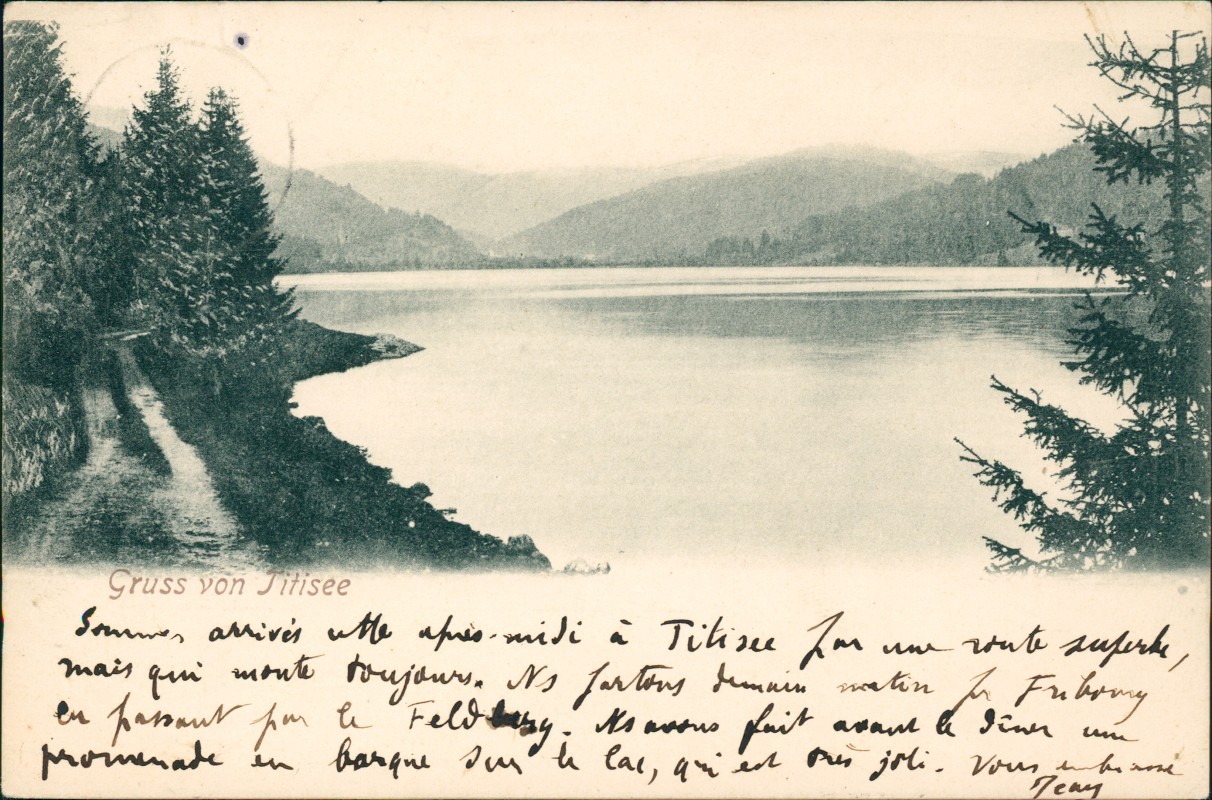 Gruss von Titisee
Sommes arrivés cette après-midi à Titisee par une route superbe,
mais qui monte toujours. Ns partons demain matin pr Fribourg
en passant par le Feldberg. Ns avons fait avant le dîner une
promenade en barque sur le lac, qui est très joli. Vous embrasse
Jean